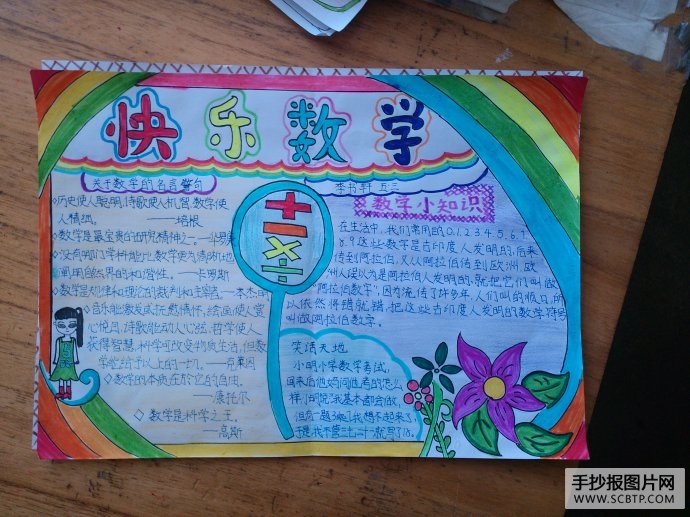 快乐数学
关于数学的名言警句
历史使人聪明,诗歌使人机智,数学使
人精细。 ——培根
数学是最宝贵的研究精神之一。—华罗庚
没有哪门学科能比数学更为清晰地
阐明自然界的和谐性。—卡罗斯
数学是规律和理论的裁判和主宰者。—本杰明
音乐能激发或抚慰情怀,绘画使人赏
心悦目,诗歌能动人心弦,哲学使人
获得智慧,科学可改变物质生活,但数
学能给予以上的一切。—克莱因
数学的本质在於它的自由。
——康托尔
数学是科学之王。
——高斯
+-×÷
李书轩 五三
数学小知识
在生活中,我们常用的0.1.2.3.4.5.6.7
8.9.这些数字是古印度人发明的,后来
传到阿拉伯,又从阿拉伯传到欧洲,欧
洲人误以为是阿拉伯人发明的,就把它们叫做
"阿拉伯数字",因为流传了许多年,人们叫的顺口,所
以依然将错就错,把这些古印度人发明的数字符号
叫做阿拉伯数字。
笑话天地
小明小学数学考试,
回来后他妈问他考的怎么
样,小明说"我基本都会做,
但有一题3乘7我想不起来了,
于是我不管三七二十一就写了18。
5
手抄报图片网
WWW.SCBTP.COM